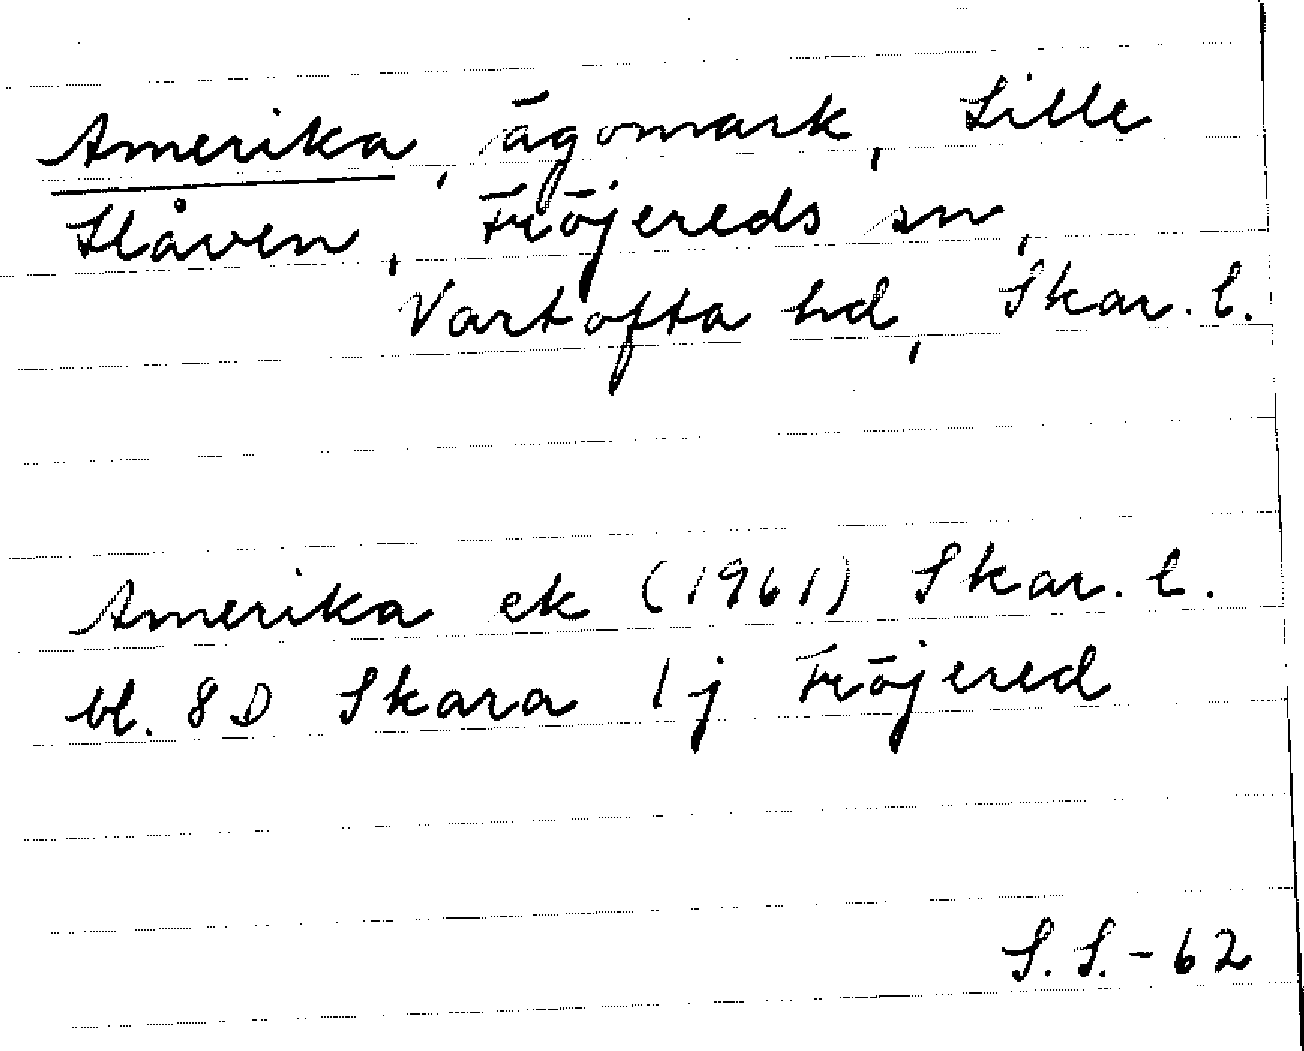 Amerika, ägomark, Lille
Slåven, Fröjereds sn,
Vartofta hd, Skar. l.
Amerika ek (1961) Skar. l.
bl. 8D Skara 1j Fröjered
S. S. - 62